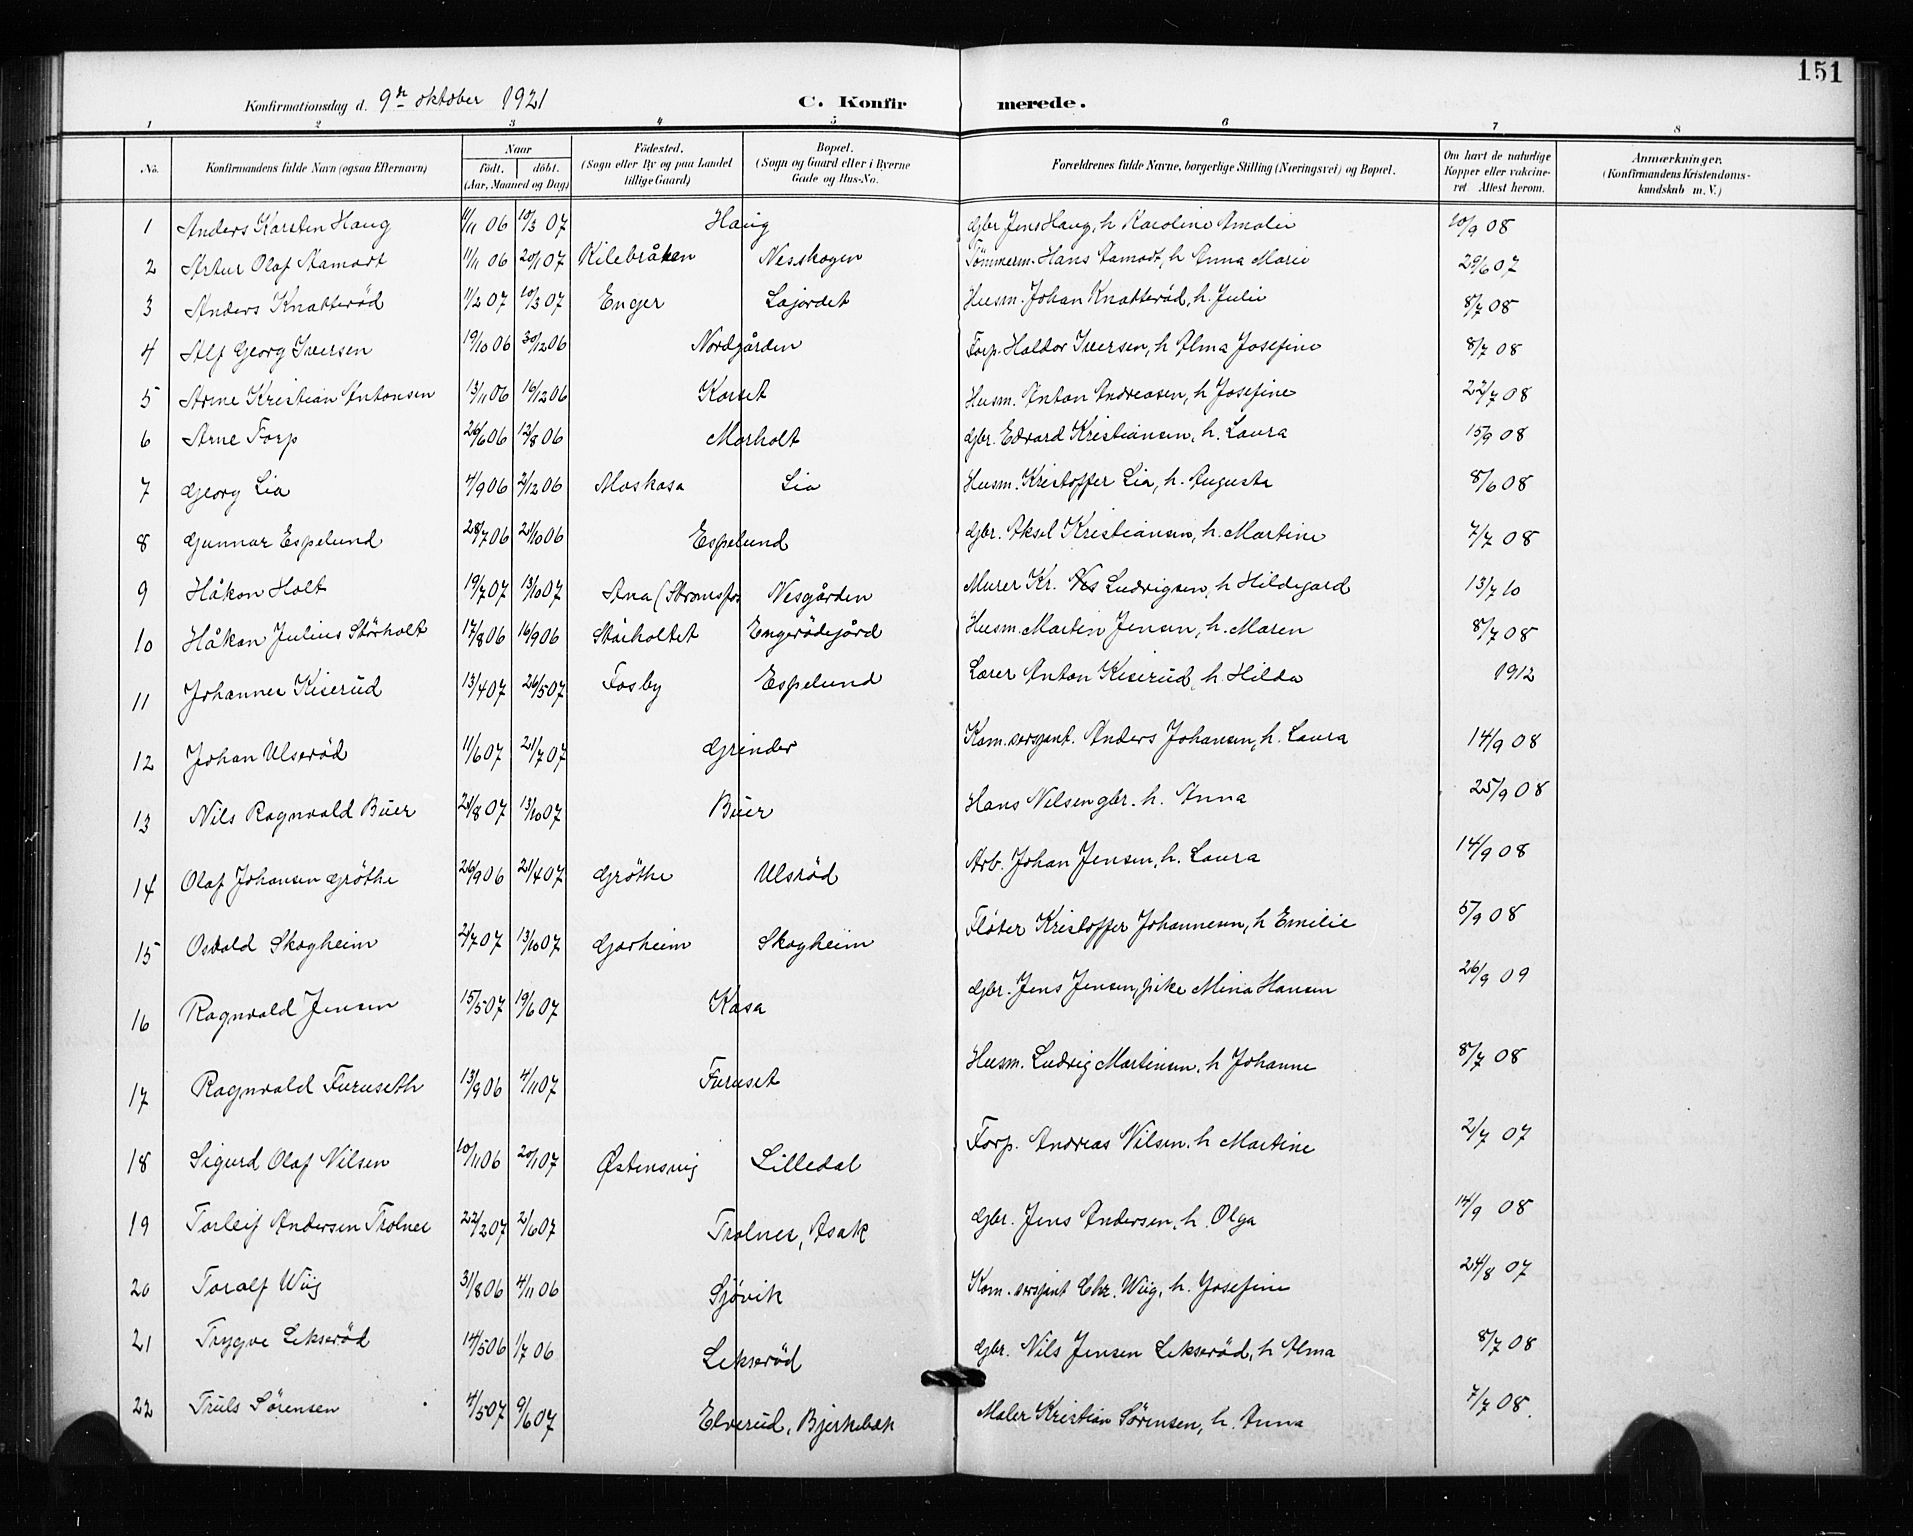 151
Konfirmationsdag d. 9de oktober 1921 C. Konfirmerede.
1 2 3 4 5 6 7 8
No. Konfirmandens fulde Navn (ogsaa Efternavn) Naar født. døbt. (Aar, Maaned og Dag) Födested. (Sogn eller By og paa Landet tillige Gaard) Bopæl. (Sogn og Gaard eller i Byerne Gade og Hus-No. Forældrenes fulde Navne, borgerlige Stilling (Næringsvei) og Bopæl. Om havt de naturlige Kopper eller vakcineret Attest herom. Anmærkninger. (Konfirmandens Kristendomskundskab m. V.)
1 Anders Karsten Haug 11/11 06 10/3 07 Haug Gbr Jens Haug, h Karoline Amalie 10/9 08
2 Artur Olaf Aamodt 11/11 06 20/1 07 Kilebråken Nesskogen Tømmerm. Hans Aamodt, h Anna Marie 29/6 07
3 Anders Knatterød 11/2 07 10/3 07 Enger Lajordet Husm. Johan Knatterød, h. Julie 8/7 08
4 Alf Georg Iversen 19/10 06 30/12 06 Nordgården Forp. Haldor Iversen, h Alma Josefine 8/7 08
5 Arne Kristian Antonsen 13/11 06 16/12 06 Korset Husm. Anton Andreasen, h Josefine 22/7 08
6 Arne Torp 26/6 06 12/8 06 Morholt Gbr. Edvard Kristiansen, h. Laura 15/9 08
7 Georg Lia 4/9 06 2/12 06 Moskasa Lia Husm. Kristoffer Lia, h. Augusta 8/6 08
8 Gunnar Espelund 28/7 06 21/10 06 Espelund Gbr. Aksel Kristiansen, h. Martine 7/7 08
9 Håkon Holt 19/7 07 13/10 07 Ana (Strømsfos Nesgården Murer Kr. Ludvigsen, h Hildegard 13/7 10
10 Håkan Julius Stårholt 17/8 06 16/9 06 Stårholtet Engerødegård Husm. Martin Jensen, h. Maren 8/7 08
11 Johannes Kiserud 13/4 07 26/5 07 Fosby Espelund Lærer Anton Kiserud, h. Hilda 1912
12 Johan Ulserød 11/6 07 21/7 07 Grinder Kom.sersjant. Anders Johansen, h. Laura 14/9 08
13 Nils Ragnvald Buer 21/8 07 13/10 07 Buer Hans Nilsen gbr. h. Anna 25/9 08
14 Olaf Johansen Grøthe 26/9 06 21/4 07 Grøthe Ulsrød Arb. Johan Jensen, h. Laura 14/9 08
15 Osvald Skogheim 2/7 07 13/10 07 Gorheim Skogheim Fløter Kristoffer Johannesen, h Emilie 5/9 08
16 Ragnvald Jensen 15/5 07 19/6 07 Kasa Gbr. Jens Jensen, pike Mina Hansen 26/9 09
17 Ragnvald Furuseth 13/9 06 4/11 07 Furuset Husm. Ludvig Martinsen, h Johanne 8/7 08
18 Sigurd Olaf Nilsen 10/11 06 20/1 07 Østensvig Lilledal Forp. Andreas Nilsen. h Martine 2/7 07
19 Torleif Andersen Trolner 22/2 07 2/6 07 Trolner, Asak Gbr. Jens Andersen, h. Olga 14/9 08
20 Toralf Wiig 31/8 06 4/11 06 Sjøvik Kom. sersjant Chr. Wiig, h. Josefine 24/8 07
21 Trygve Lekserød 14/5 06 1/7 06 Lekserød Gbr. Nils Jensen Lekserød, h Alma 8/7 08
22 Truls Sørensen 4/5 07 9/6 07 Elverud, Bjerkebæk Maler Kristian Sørensen, h. Anna 7/7 08